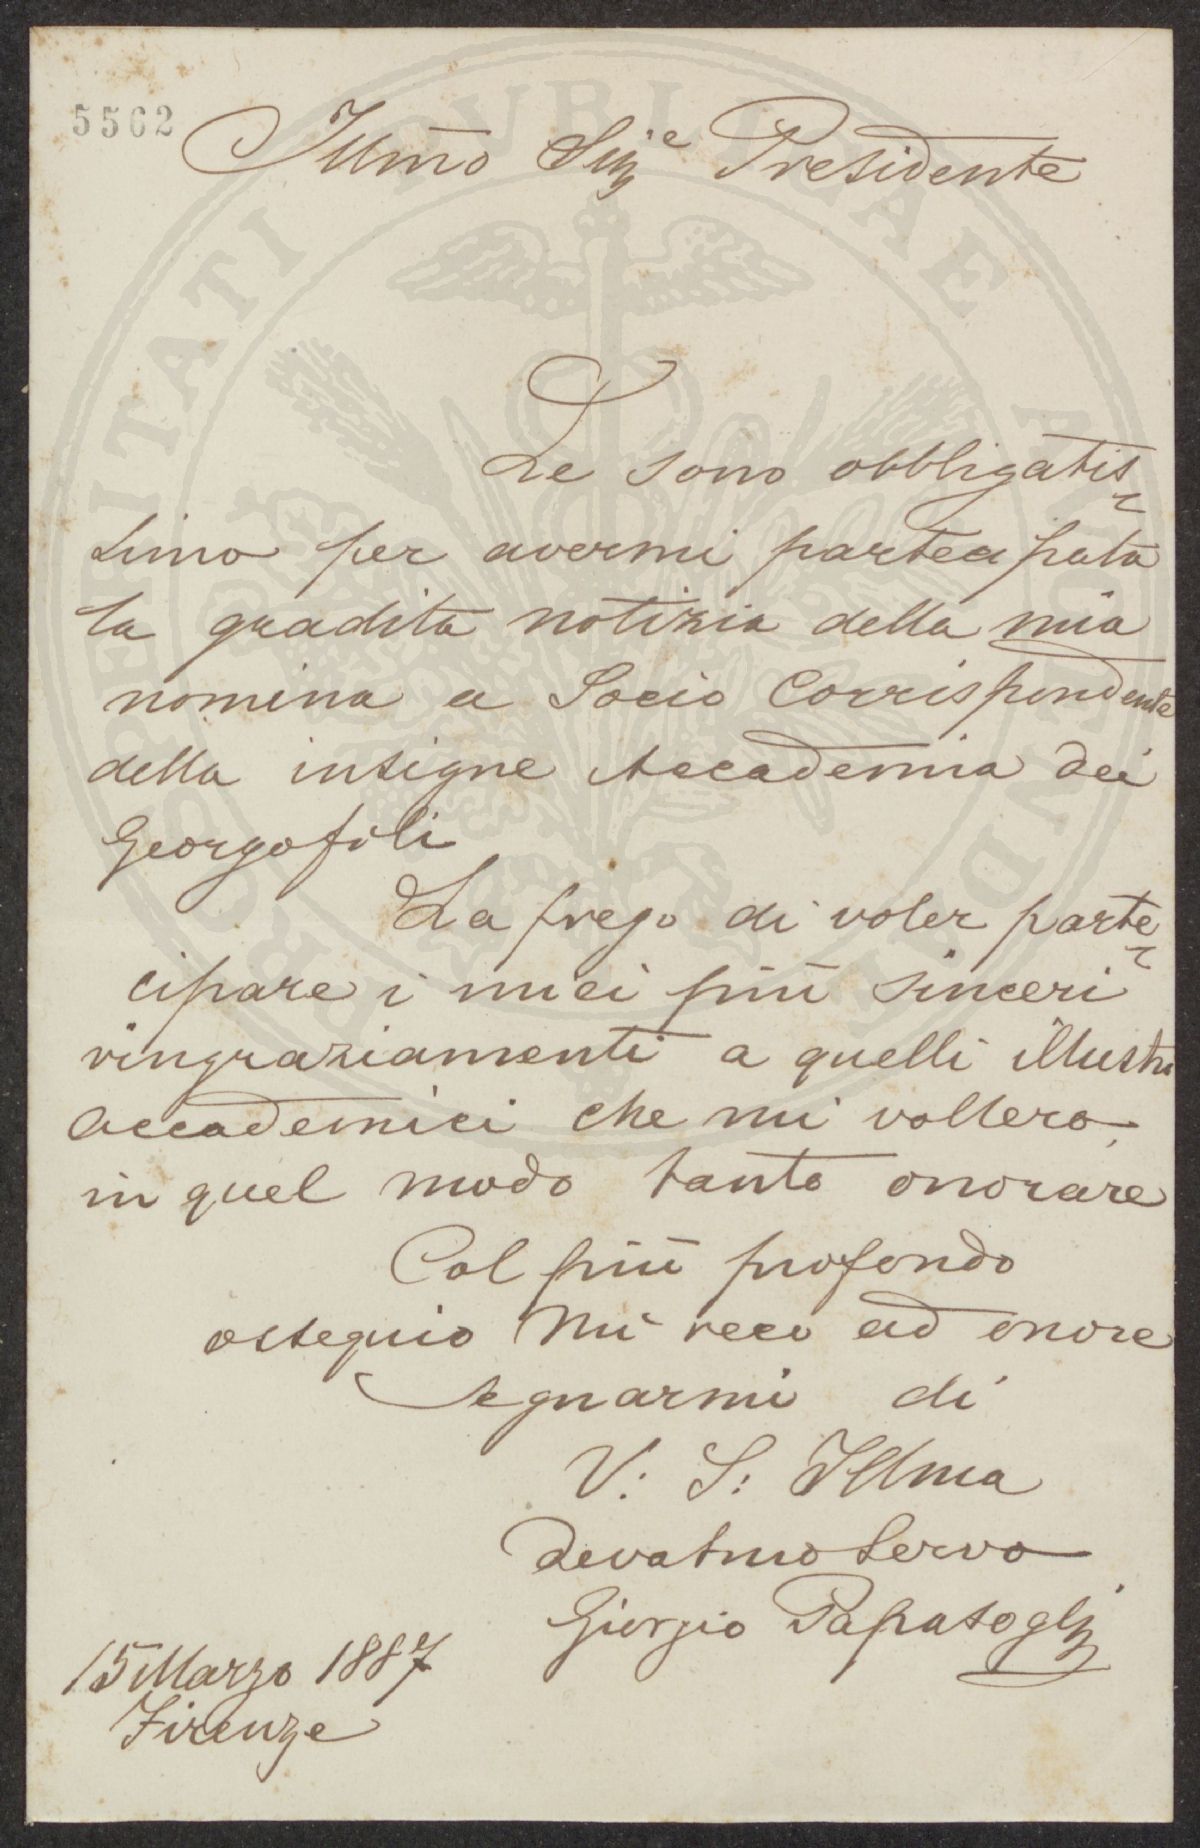 5562
Illmo Sige Presidente
Le sono obbligatis-
simo per avermi partecipata
la gradita notizia della mia
nomina a Socio Corrispondente
della insigne Accademia dei
Georgofili
La prego di voler parte-
cipare i miei più sinceri
ringraziamenti a quelli illustri
accademici che mi vollero
in quel modo tanto onorare
Col più profondo
ossequio mi reco ad onore
segnarmi di
V: S: Illma
Devotmo Servo
Giorgio Papasogli
15 Marzo 1887
Firenze
PROSPERITATI PUBLICAE AUGENDAE